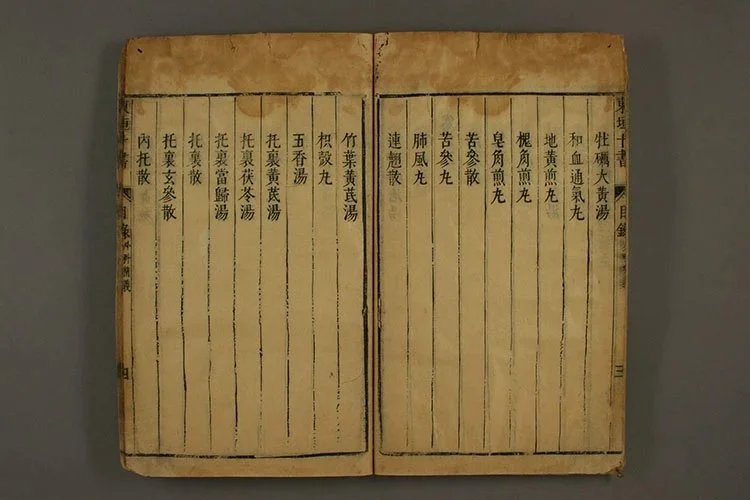 東垣十書 目錄 三
牡礪大黃湯
和血通氣丸
地黃煎丸
槐角煎丸
皂角煎丸
苦參散
苦參丸
肺風丸
連翹散
竹葉黃芪湯
枳殼丸
五香湯
托裏黃芪湯
托裏茯苓湯
托裏當歸湯
托裏散
托裏玄參散
內托散
東垣十書 目錄 外科精義 四